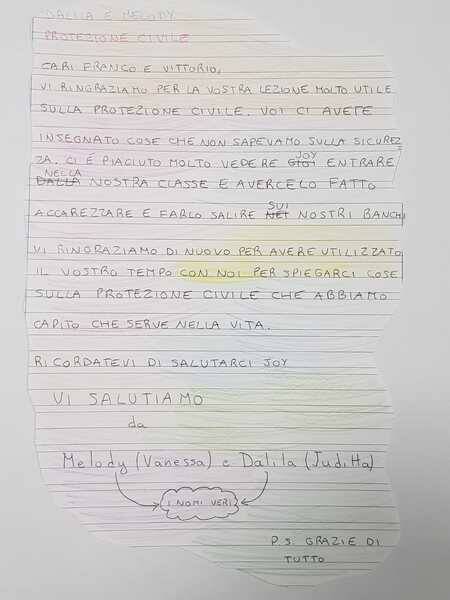 DALILA E MELODY
PROTEZIONE CIVILE
CARI FRANCO E VITTORIO,
VI RINGRAZIAMO PER LA VOSTRA LEZIONE MOLTO UTILE
SULLA PROTEZIONE CIVILE. VOI CI AVETE
INSEGNATO COSE CHE NON SAPEVAMO SULLA SICUREZ
ZA. CI È PIACIUTO MOLTO VEDERE JOY ENTRARE
NELLA DALLA NOSTRA CLASSE E AVERCELO FATTO
ACCAREZZARE E FARLO SALIRE SUI NEI NOSTRI BANCHI
VI RINGRAZIAMO DI NUOVO PER AVERE UTILIZZATO
IL VOSTRO TEMPO CON NOI PER SPIEGARCI COSE
SULLA PROTEZIONE CIVILE CHE ABBIAMO
CAPITO CHE SERVE NELLA VITA.
RICORDATEVI DI SALUTARCI JOY
VI SALUTIAMO
da
Melody (Vanessa) e Dalila (Juditta)
I NOMI VERI
P.S. GRAZIE DI
TUTTO